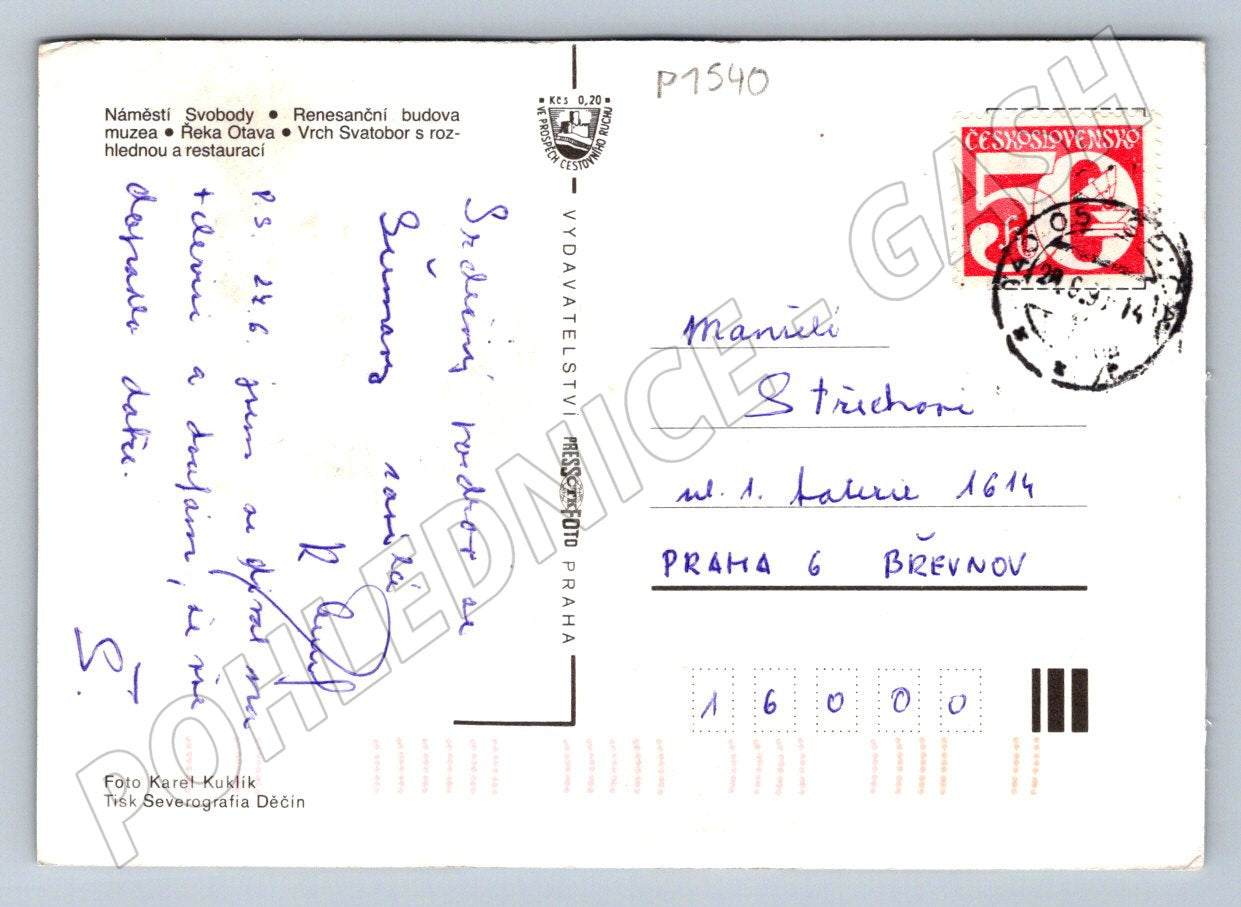 P1540
Náměstí Svobody • Renesanční budova
muzea • Řeka Otava • Vrch Svatobor s roz-
hlednou a restaurací
Kčs 0,20
VE PROSPĚCH CESTOVNÍHO RUCHU
ČESKOSLOVENSKO
50
h
Srdečný pozdrav ze
Šumavy
zasílá
P.S. 24.6. jsem se díval na
televizi a doufám, že vše
dopadlo dobře.
Š.
VYDAVATELSTVÍ PRESSFOTO PRAHA
Manželé
ul. 1. baterie 1614
PRAHA 6 BŘEVNOV
16000
Foto Karel Kuklík
Tisk Severografia Děčín
POHLEDNICE - GASH